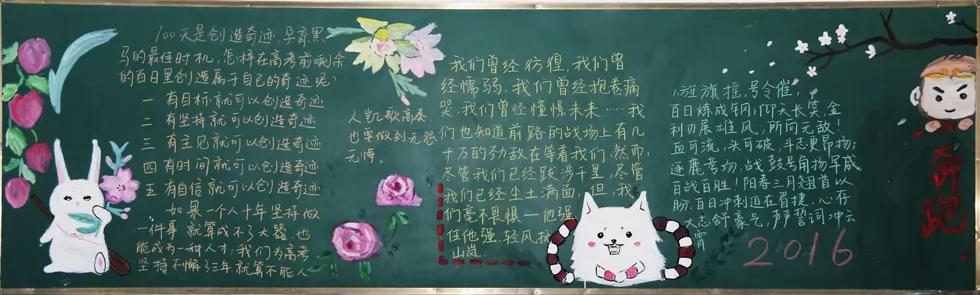 100天是创造奇迹,孕育黑
马的最佳时机,怎样在高考前剩余
的百日里创造属于自己的奇迹呢?
一 有目标就可以创造奇迹
二 有坚持就可以创造奇迹
三 有主见就可以创造奇迹
四 有时间就可以创造奇迹
五 有自信就可以创造奇迹
如果一个人十年坚持做
一件事 就算成不了大器 也
能成为一种人才,我们为高考
坚持不懈了三年就算不能人
人凯歌高奏
也要做到无怨
无悔。
我们曾经彷徨,我们曾
经懦弱,我们曾经抱卷痛
哭,我们曾经憧憬未来……我
们也知道前路的战场上有几
十万的劲敌在等着我们,然而,
尽管我们已经跋涉千里,尽管
我们已经尘土满面,但,我
们毫不畏惧—他强
任他强,轻风
山岚..
旌旗摇,号令催,
百日炼成钢,仰天长笑,金
利刃展雄风,所向无敌!
血可流,头可破,斗志更昂扬;
逐鹿考场,战鼓号角扬军威,
百战百胜!阳春三月翘首以
盼,百日冲刺迫在眉捷.心存
大志舒豪气,声声誓词冲云
霄
2016
奔跑